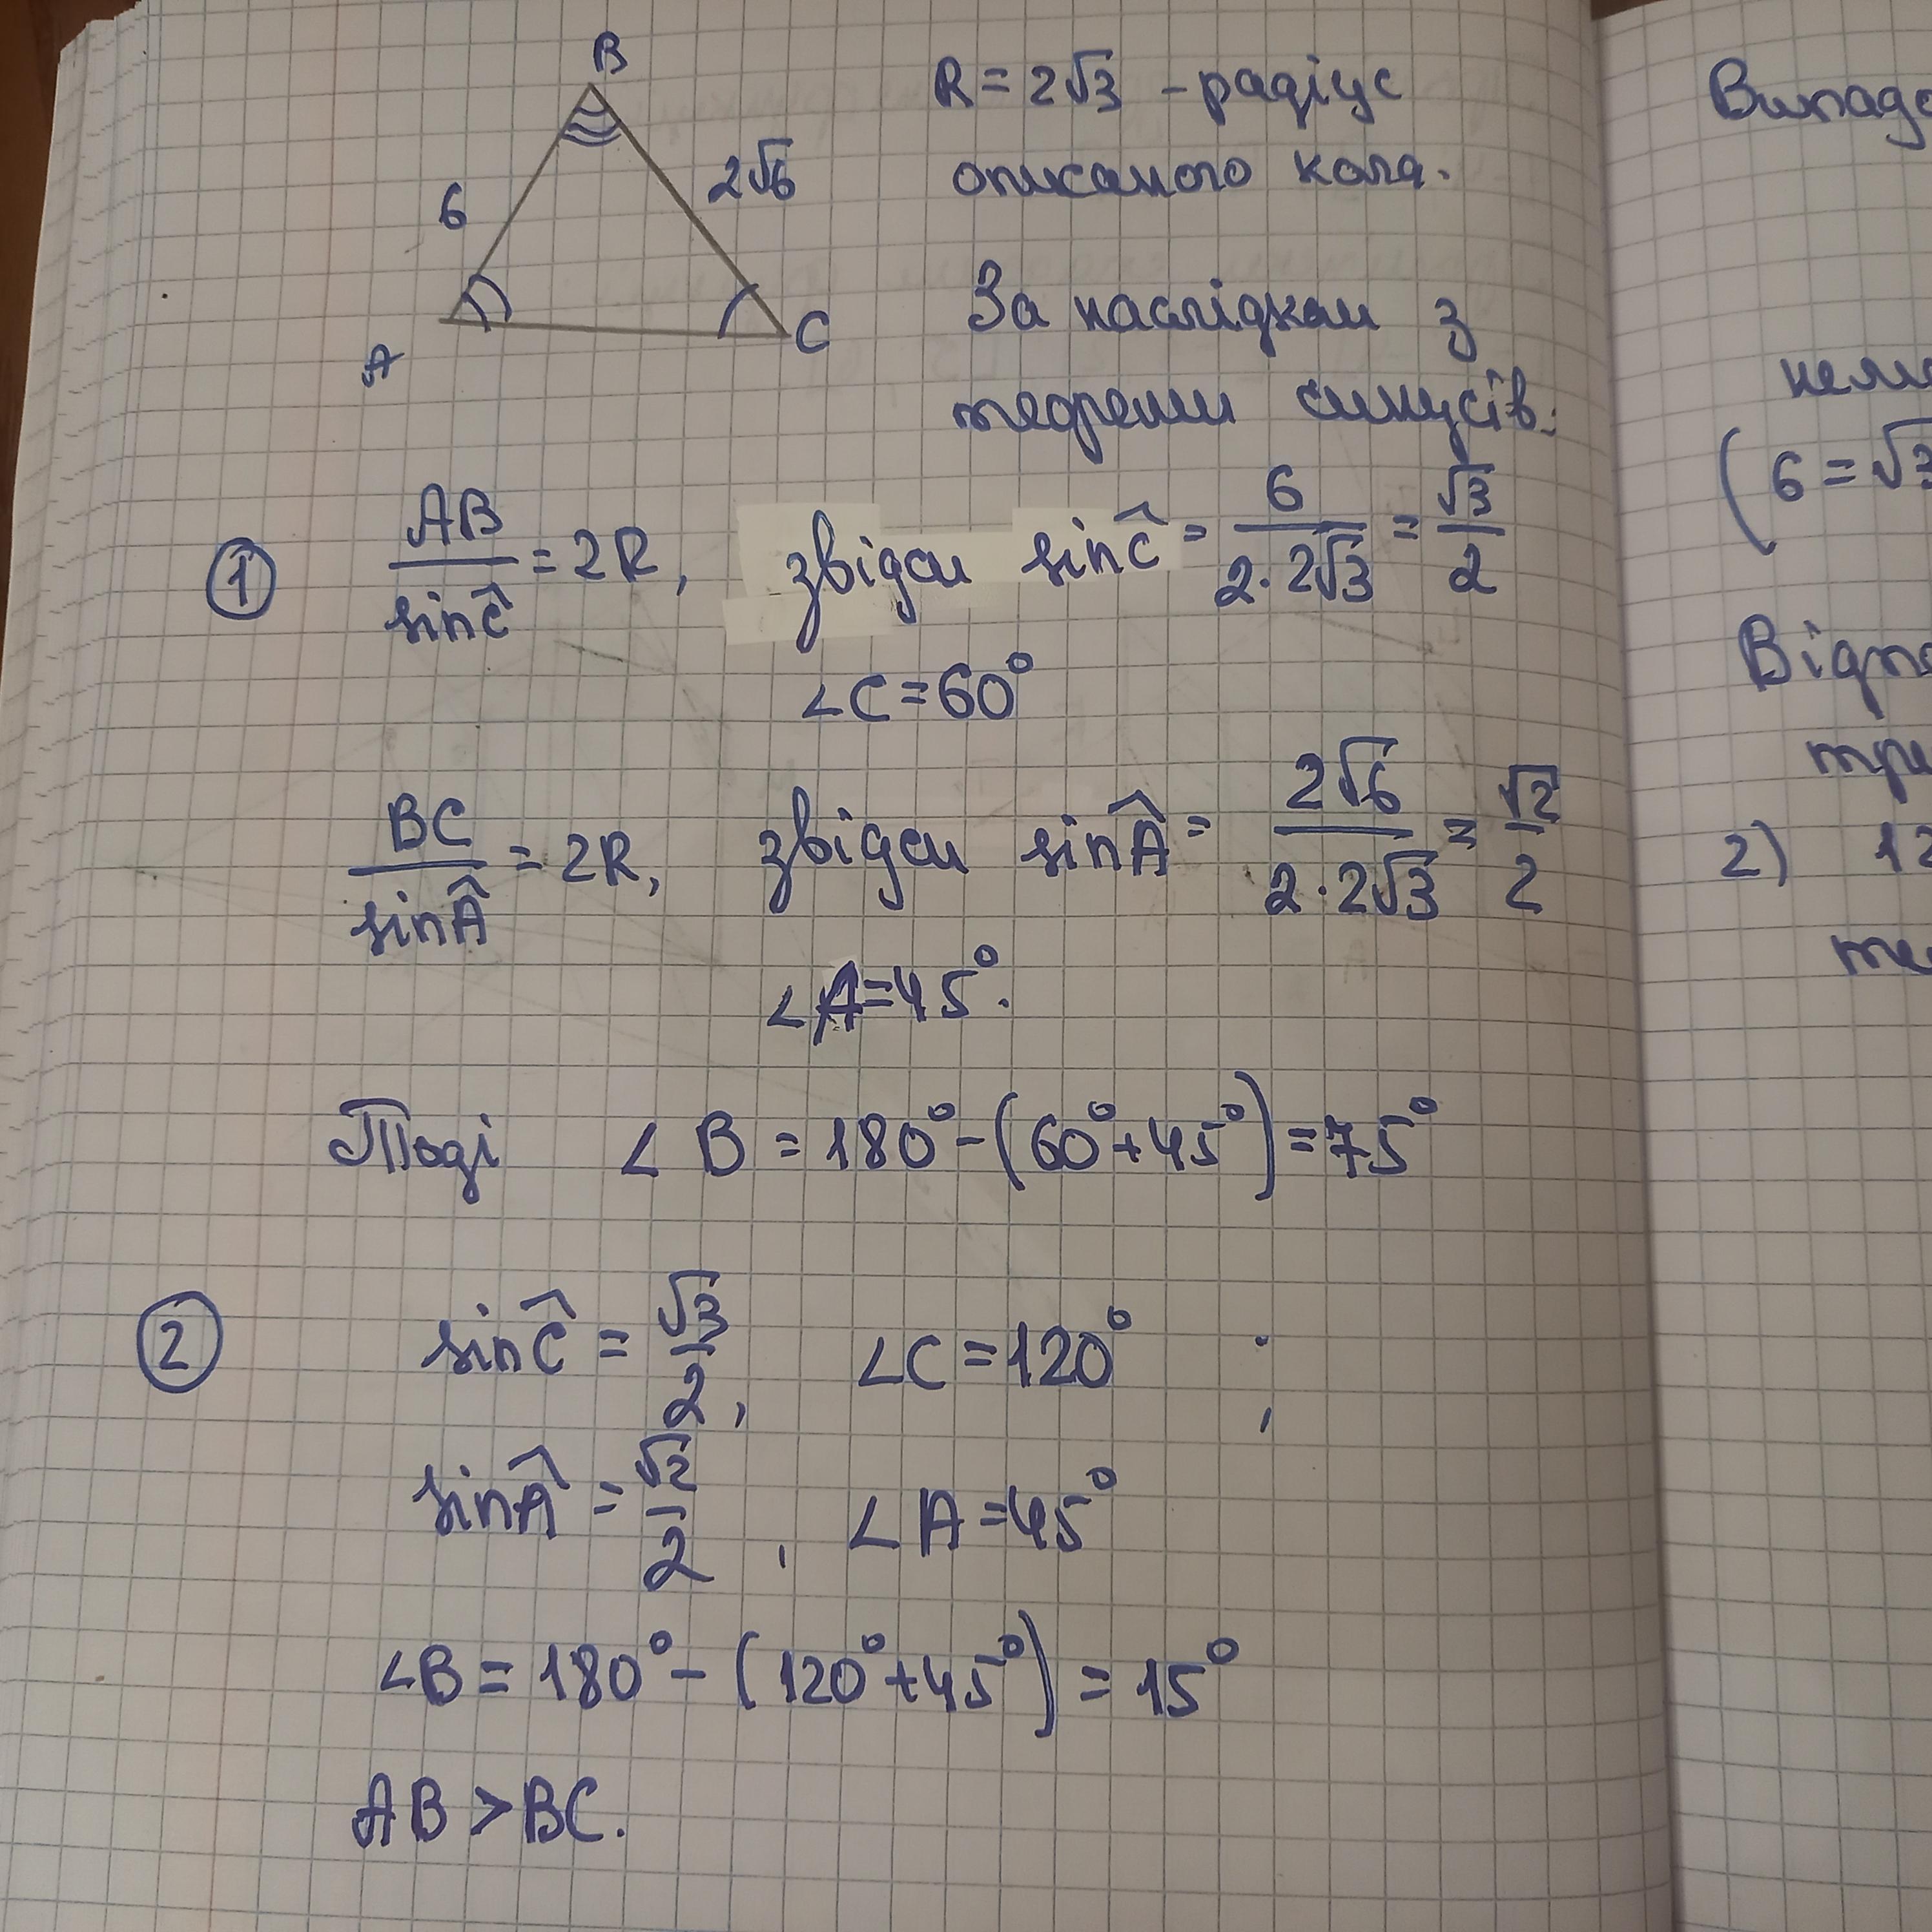 B
R = 2√3 - радіус
описаного кола.
6
2√6
A
C
За наслідком з
теореми синусів:
① AB/sinĈ = 2R, звідси sinĈ = 6/(2·2√3) = √3/2
∠C = 60°
BC/sinÂ = 2R, звідси sinÂ = 2√6/(2·2√3) = √2/2
∠A = 45°.
Тоді ∠B = 180° - (60° + 45°) = 75°
② sinĈ = √3/2, ∠C = 120° ;
sinÂ = √2/2, ∠A = 45°
∠B = 180° - (120° + 45°) = 15°
AB > BC.
2)